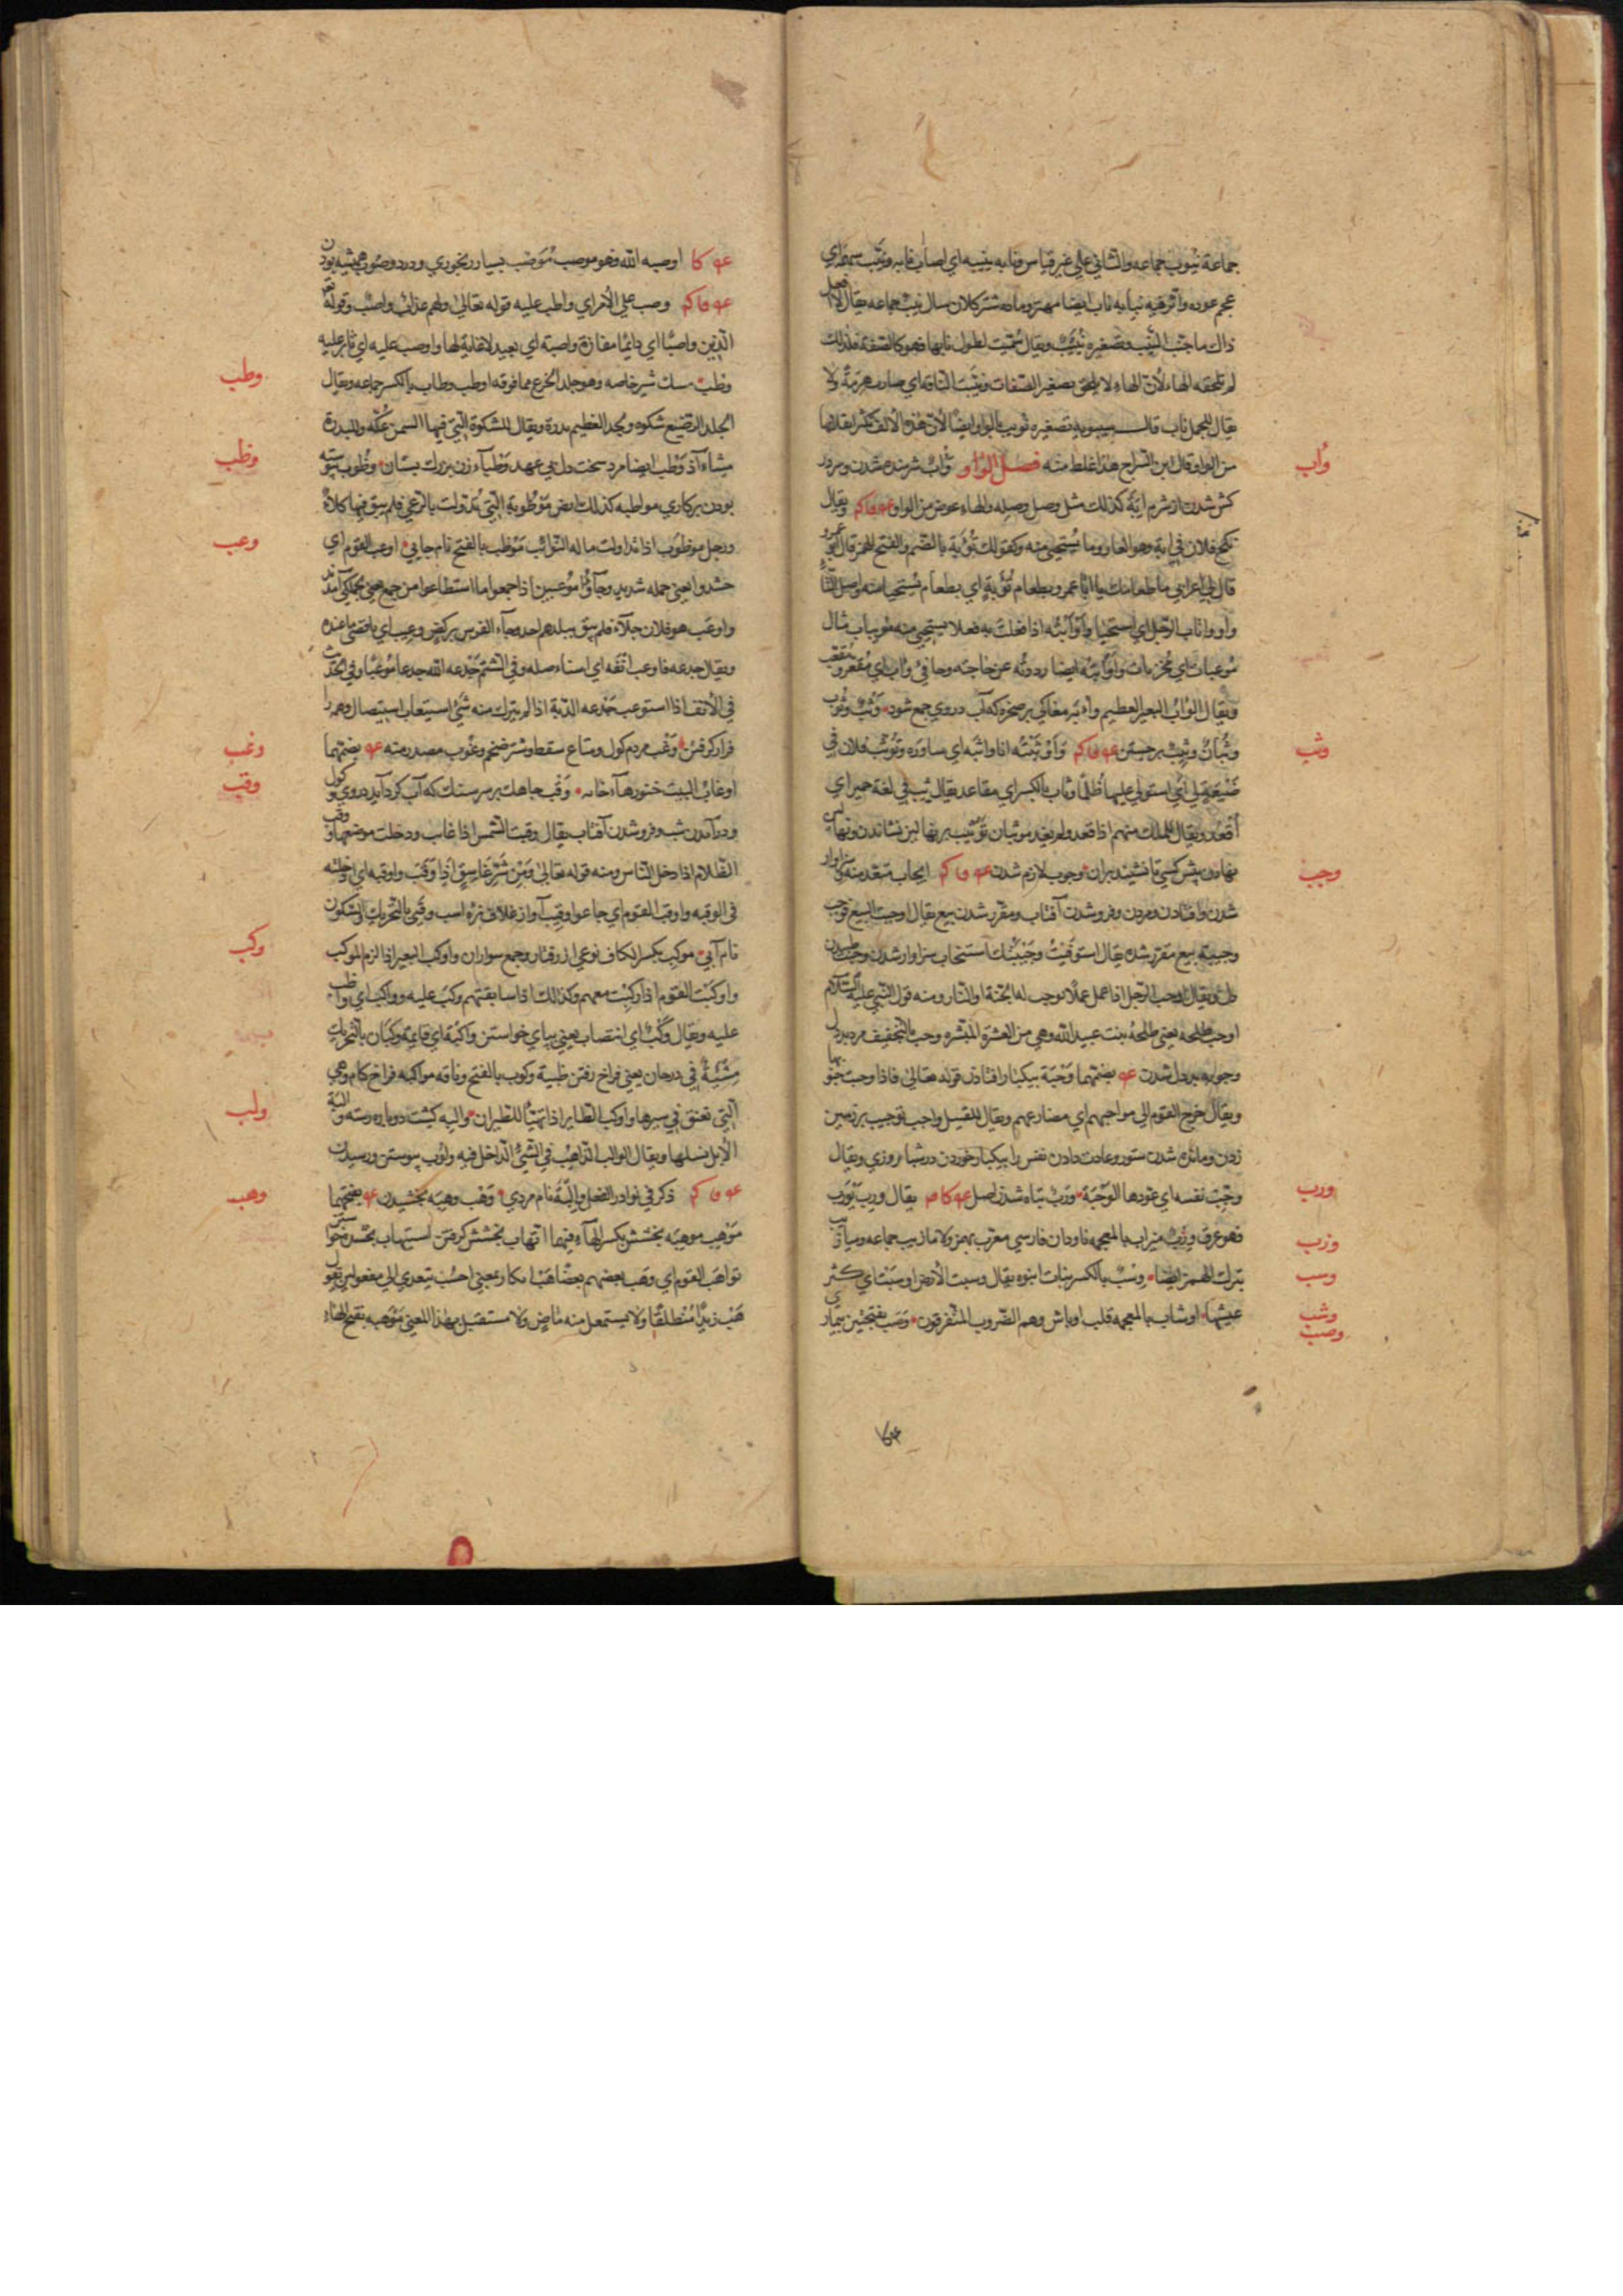 جماعة نيوب جماعه والثاني على غير قياس ونابه ينيبه اي اصاب نابه ونيّب سهمه اي
عجم عوده واثر فيه بنابه ناب ايضا مهتر وماده شتر كلان سال نيب جماعه يقال لا افعل
ذاك ما حنّت النيب وتصغيره نييب ويقال سمّيت لطول نابها فهو كالصفة فلذلك
لم تلحقه الهاء لأنّ الهاء لا يلحق تصغير الصفات ونيّبت الناقة اي صارت هرمة ولا
يقال للجمل ناب قال سيبويه تصغيره نويب بالواو ايضًا لأنّ هذه الألف كثر انقلابها
من الواو وقال ابن السراج هذا غلط منه فصل الواو وأب شرمنده شدن ومرد
وأب
كش شدن از شرم ابة كذلك مثل وصل وصله والهاء عوض من الواو ويقال
نكح فلان في ابة وهو العار وما يستحيى منه وكقولك تؤبة بالضم والفتح الهمز قال ابو عمرو
قال لي اعرابي ما طعامك يا ابا عمرو بطعام تؤبة اي بطعام يستحيا منه واصل التاء
واو واتّاب الرجل اي استحيا واوأبته اذا فعلت به فعلا يستحيى منه
اي مخزيات واوأبته ايضا رددته عن حاجته وحافر وأب اي مقعر مقعب
ويقال الوأب البعير العظيم وأبه مغاكي بر صخره كه آب دروي جمع شود وثب وثوب
وثبان وثيب برجستن واوثبته انا واثبه اي ساوره وتوثب فلان في
وثب
ضيعة لي اي استولى عليها ظلما وثاب بالكسر اي مقاعد يقال ثب في لغة حمير اي
أقعد ويقال للملك منهم اذا قعد ولم يغز موثبان توثيب بر نهالين نشاندن ونهالين
نهادن پيش كسي تا نشيند بران وجوب لازم شدن ايجاب متعد منه سزاوار
وجب
شدن وافتادن ومردن وفرو شدن آفتاب ومقرر شدن بيع يقال اوجبت البيع فوجب
وجيبة بيع مقرر شده يقال استوفيت وجيبتك استيجاب سزاوار شدن وجيب طپيدن
دل ويقال اوجب الرجل اذا عمل عملا توجب له الجنة او النار ومنه قول النبي عليه السلام
اوجب طلحه يعني طلحة بن عبيد الله وهي من العشرة المبشره وجب بالتخفيف مرد بددل
وجوبه بددل شدن بضمهما وجبة بيكبار افتادن قوله تعالى فاذا وجبت جنوبها
ويقال خرج القوم الى مواجبهم اي مصارعهم ويقال للقتيل واجب توجيب بر زمين
زدن ومانده شدن ستور وعادت دادن نفس را بيكبار خوردن در شبا نروزي ويقال
وجبت نفسه اي عودها الوجبة ورب تباه شدن اصل يقال ورب يورب
ورب
فهو عرق ورب ميزاب بالمعجمه ناودان فارسي معرب بهمز ولا مازيب جماعه وميازيب
وزب
بترك الهمز ايضا وسب بالكسر نبات انبوه يقال وسبت الأرض اوسبت اي كثر
وسب
عشبها اوشاب بالمعجمه قلب اوباش وهم الضروب المتفرقون وصب بفتحتين بيماري
وشب
وصب
اوصبه الله فهو موصب موصب بسيار رنجوري ودرد وصوب هميشه بودن
وصب على الأمر اي واظب عليه قوله تعالى ولهم عذاب واصب وقوله تعالى
الدين واصبًا اي دائمًا مفازة واصبة اي بعيد لا غاية لها واوصب عليه اي ثابر عليه
وطب مشك شير خاصه وهو جلد الجذع مما فوقه اوطب وطاب بالكسر جماعه ويقال
وطب
لجلد الرضيع شكوه ولجلد الفطيم بدرة ويقال للشكوة التي فيها السمن عكّه وللبدرة
مسأد وطب ايضا مرد سخت دل بي عهد وطبآء زن بزرك پستان وظوب پيوسته
وظب
بودن بر كاري مواظبه كذلك ارض موظوبة التي تدوولت بالرعي فلم يبق فيها كلاء
ورجل موظوب اذا تداولت ماله النوائب موظب بالفتح نام جايي اوعب القوم اي
وعب
حشدوا يعني حمله شديد وجاؤا موعبين اذا جمعوا ما استطاعوا من جمع يعني بجملكي آمدند
واوعب بنو فلان جلاء فلم يبق ببلدهم احد وجاء الفرس بركض وعيب اي باقصى ما عنده
ويقال جدعه فاوعب انفه اي استأصله وفي الشتم جدعه الله جدعا موعبا وفي الحديث
في الأنف اذا استوعب جدعه الدية اذا لم يترك منه شئ استيعاب استيصال وهمه را
فرا كرفتن وغب مردم كول ومتاع سقط وشتر ضخم وغوب مصدر منه بضمهما
وغب
اوغاب البيت خنورهاء خانه وقب چاهك بر سر سنك كه آب كرد آيد دروي وكول
وقب
ودر آمدن شب وفرو شدن آفتاب يقال وقبت الشمس اذا غابت ودخلت موضعها وقب
الظلام اذا دخل الناس ومنه قوله تعالى ومن شر غاسق اذا وقب واوقبه اي ادخله
في الوقبه واوقب القوم اي جاعوا وقيب آواز غلاف نره اسب وقبى بالتحريك والسكون
نام آبي موكب بكسر الكاف نوعي از رفتار وجمع سواران واوكب البعير اذا لزم الموكب
وكب
وواكبت القوم اذا ركبت معهم وكذلك اذا سابقتهم وكب عليه وواكب اي واظب
عليه ويقال وكب اي انتصاب يعني بپاي خواستن واكبة اي قايمة وكبان بالتحريك
مشية في درجان يعني فراخ رفتن ظبية وكوب بالفتح وناقه مواكبه فراخ كام وهي
التي تعنق في سيرها واوكب الطاير اذا تهيأ للطيران والبه كشت دوباره رسته والبة
ولب
الأبل نسلها ويقال الوالب الذاهب في الشئ الداخل فيه ولوب پيوستن ورسيدن
ذكر في نوادر الفعل والبة نام مردي وهب وهبه بخشيدن بفتحهما
وهب
موهب موهبه بخشش بكسر الهآء فيهما اتهاب بخشش كرفتن استيهاب بخشش خواستن
تواهب القوم اي وهب بعضهم بعضا هب بكار بمعني احسب يتعدى الى مفعولين تقول
هب زيدًا منطلقًا ولا يستعمل منه ماض ولا مستقبل بهذا المعني موهبه بفتح الهاء